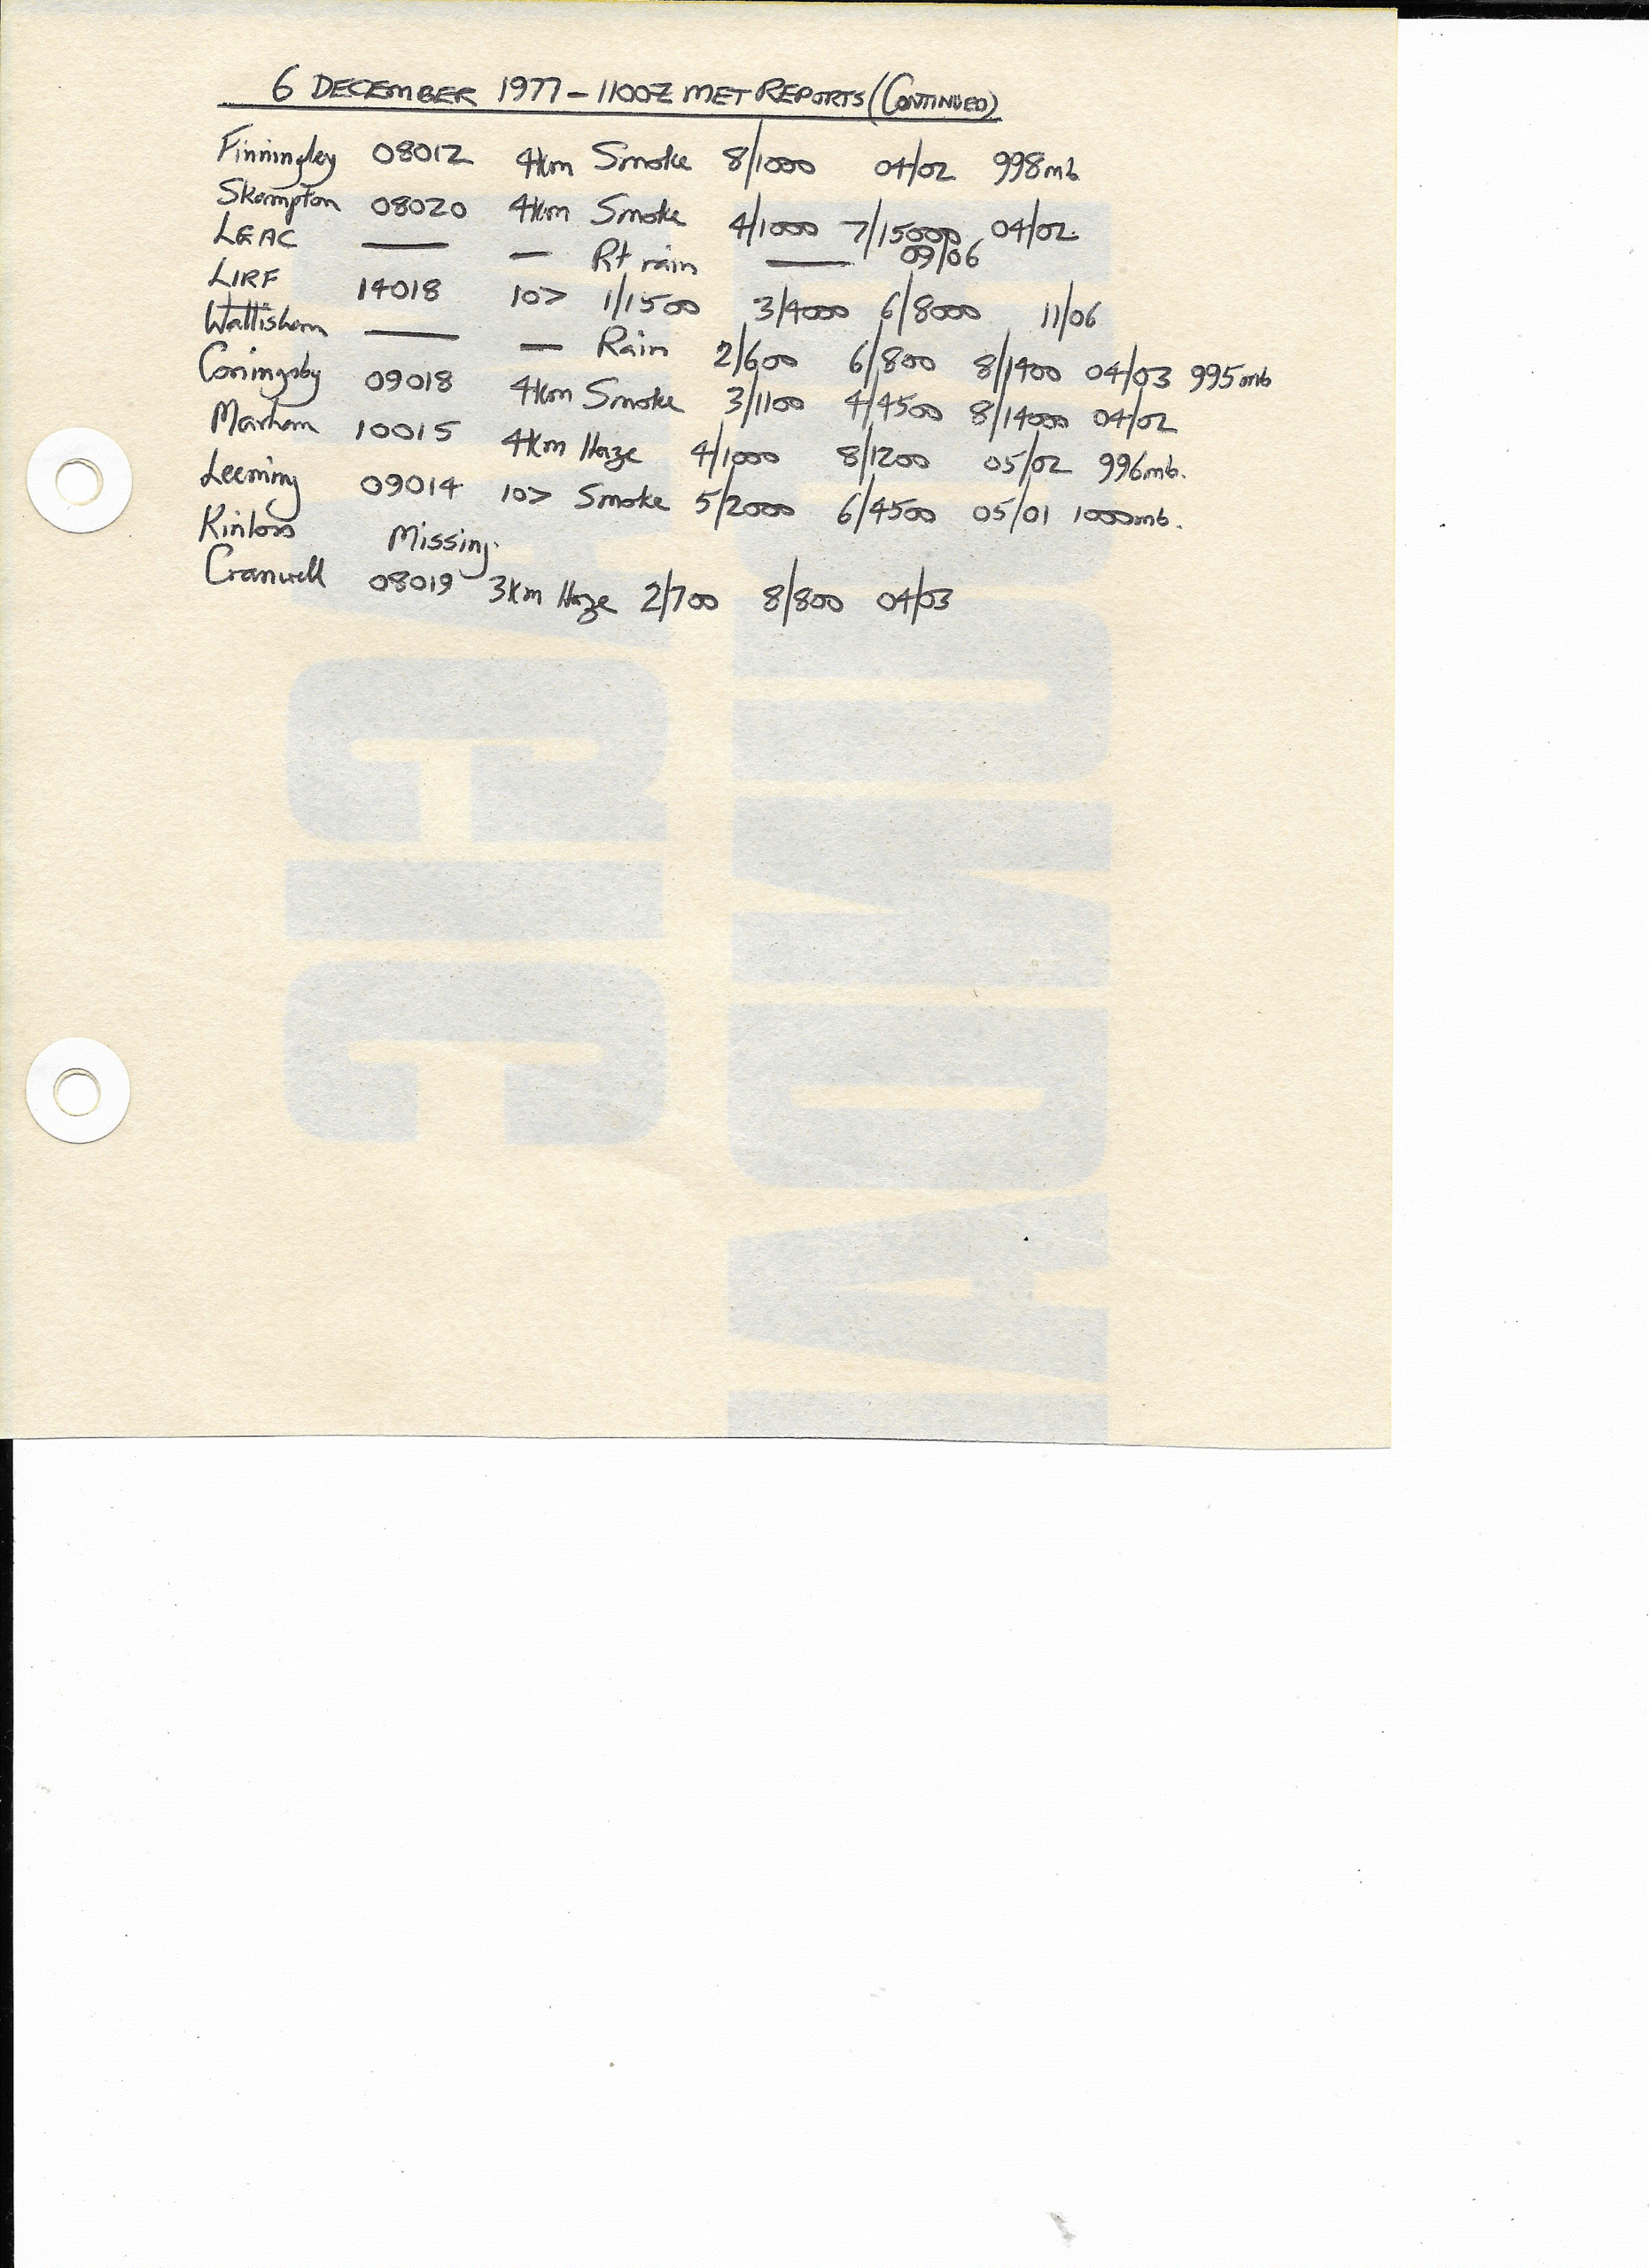 6 DECEMBER 1977 - 1100Z MET REPORTS (CONTINUED)
Finningley 08012 4km Smoke 8/1000 04/02 998mb
Skampton 08020 4km Smoke 4/1000 7/15000 04/02
LEAC — — Rt rain — 09/06
LIRF 14018 10> 1/1500 3/4000 6/8000 11/06
Wattisham — — Rain 2/600 6/800 8/1400 04/03 995mb
Coningsby 09018 4km Smoke 3/1100 4/4500 8/14000 04/02
Marham 10015 4km Haze 4/1000 8/1200 05/02 996mb.
Leeming 09014 10> Smoke 5/2000 6/4500 05/01 1000mb.
Kinloss Missing.
Cranwell 08019 3km Haze 2/700 8/800 04/03